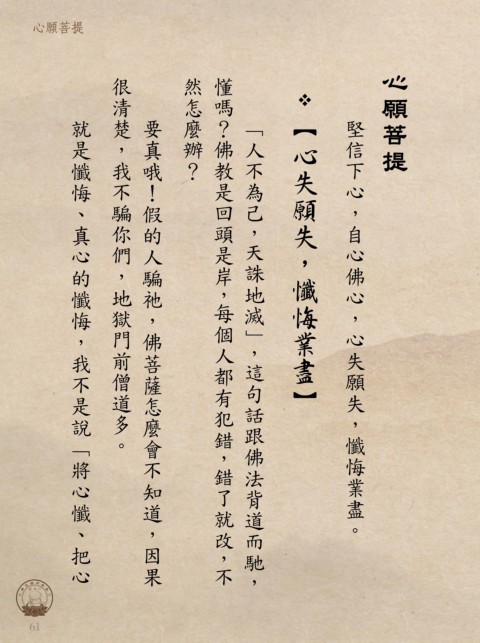 心願菩提
心願菩提
堅信下心，自心佛心，心失願失，懺悔業盡。
❖【心失願失，懺悔業盡】
「人不為己，天誅地滅」，這句話跟佛法背道而馳，
懂嗎？佛教是回頭是岸，每個人都有犯錯，錯了就改，不
然怎麼辦？
要真哦！假的人騙祂，佛菩薩怎麼會不知道，因果
很清楚，我不騙你們，地獄門前僧道多。
就是懺悔、真心的懺悔，我不是說「將心懺、把心
61